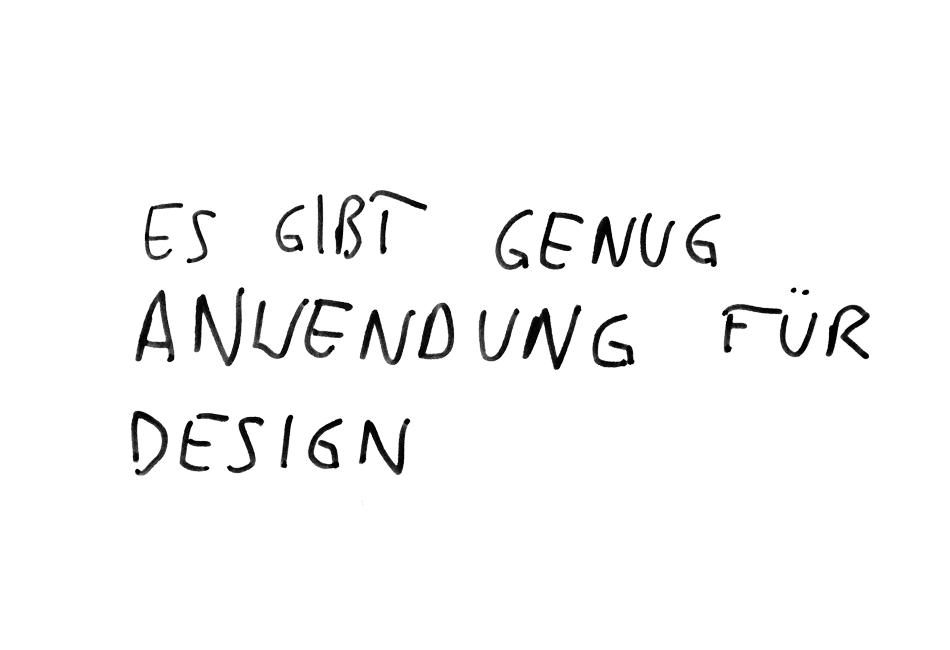 ES GIBT GENUG
ANWENDUNG FÜR
DESIGN